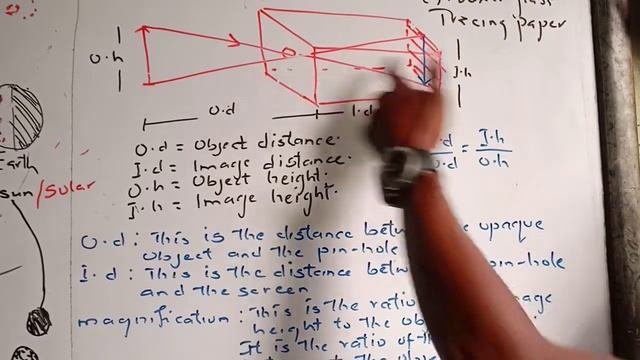 Tracing paper
O.h
I.h
O.d
I.d
O.d = Object distance.
I.d = Image distance.
O.h = Object height.
I.h = Image height.
.d = I.h
O.d O.h
Earth
sun/Solar
O.d : This is the distance opaque
object and the pin-hole
I.d : This is the distance pin-hole
and the screen
magnification : This is the ratio
height to the
It is the ratio of